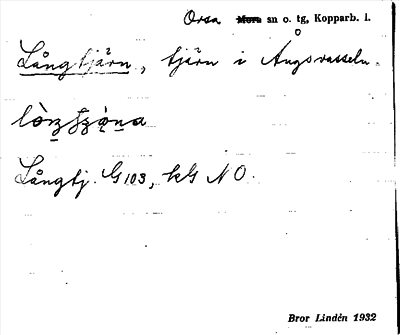 Orsa ~~Mora~~ sn o. tg, Kopparb. l.
Långtjärn, tjärn i Ångsvasseln.
Långtj. G 103, kG NO.
Bror Lindén 1932